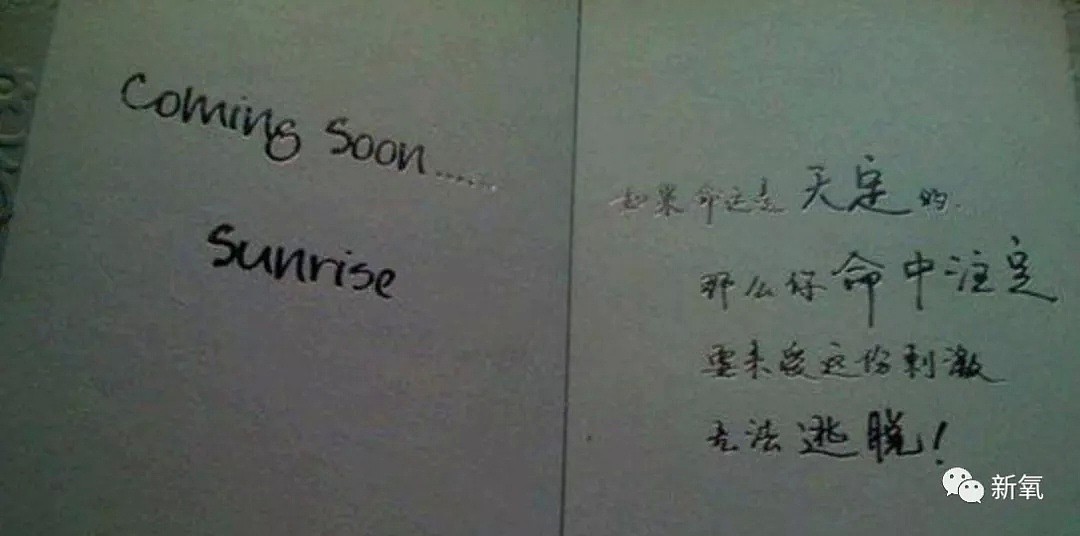 Coming Soon......
Sunrise
如果命运是天定的.
那么你命中注定
要来受这份刺激
无法逃脱!
新氧